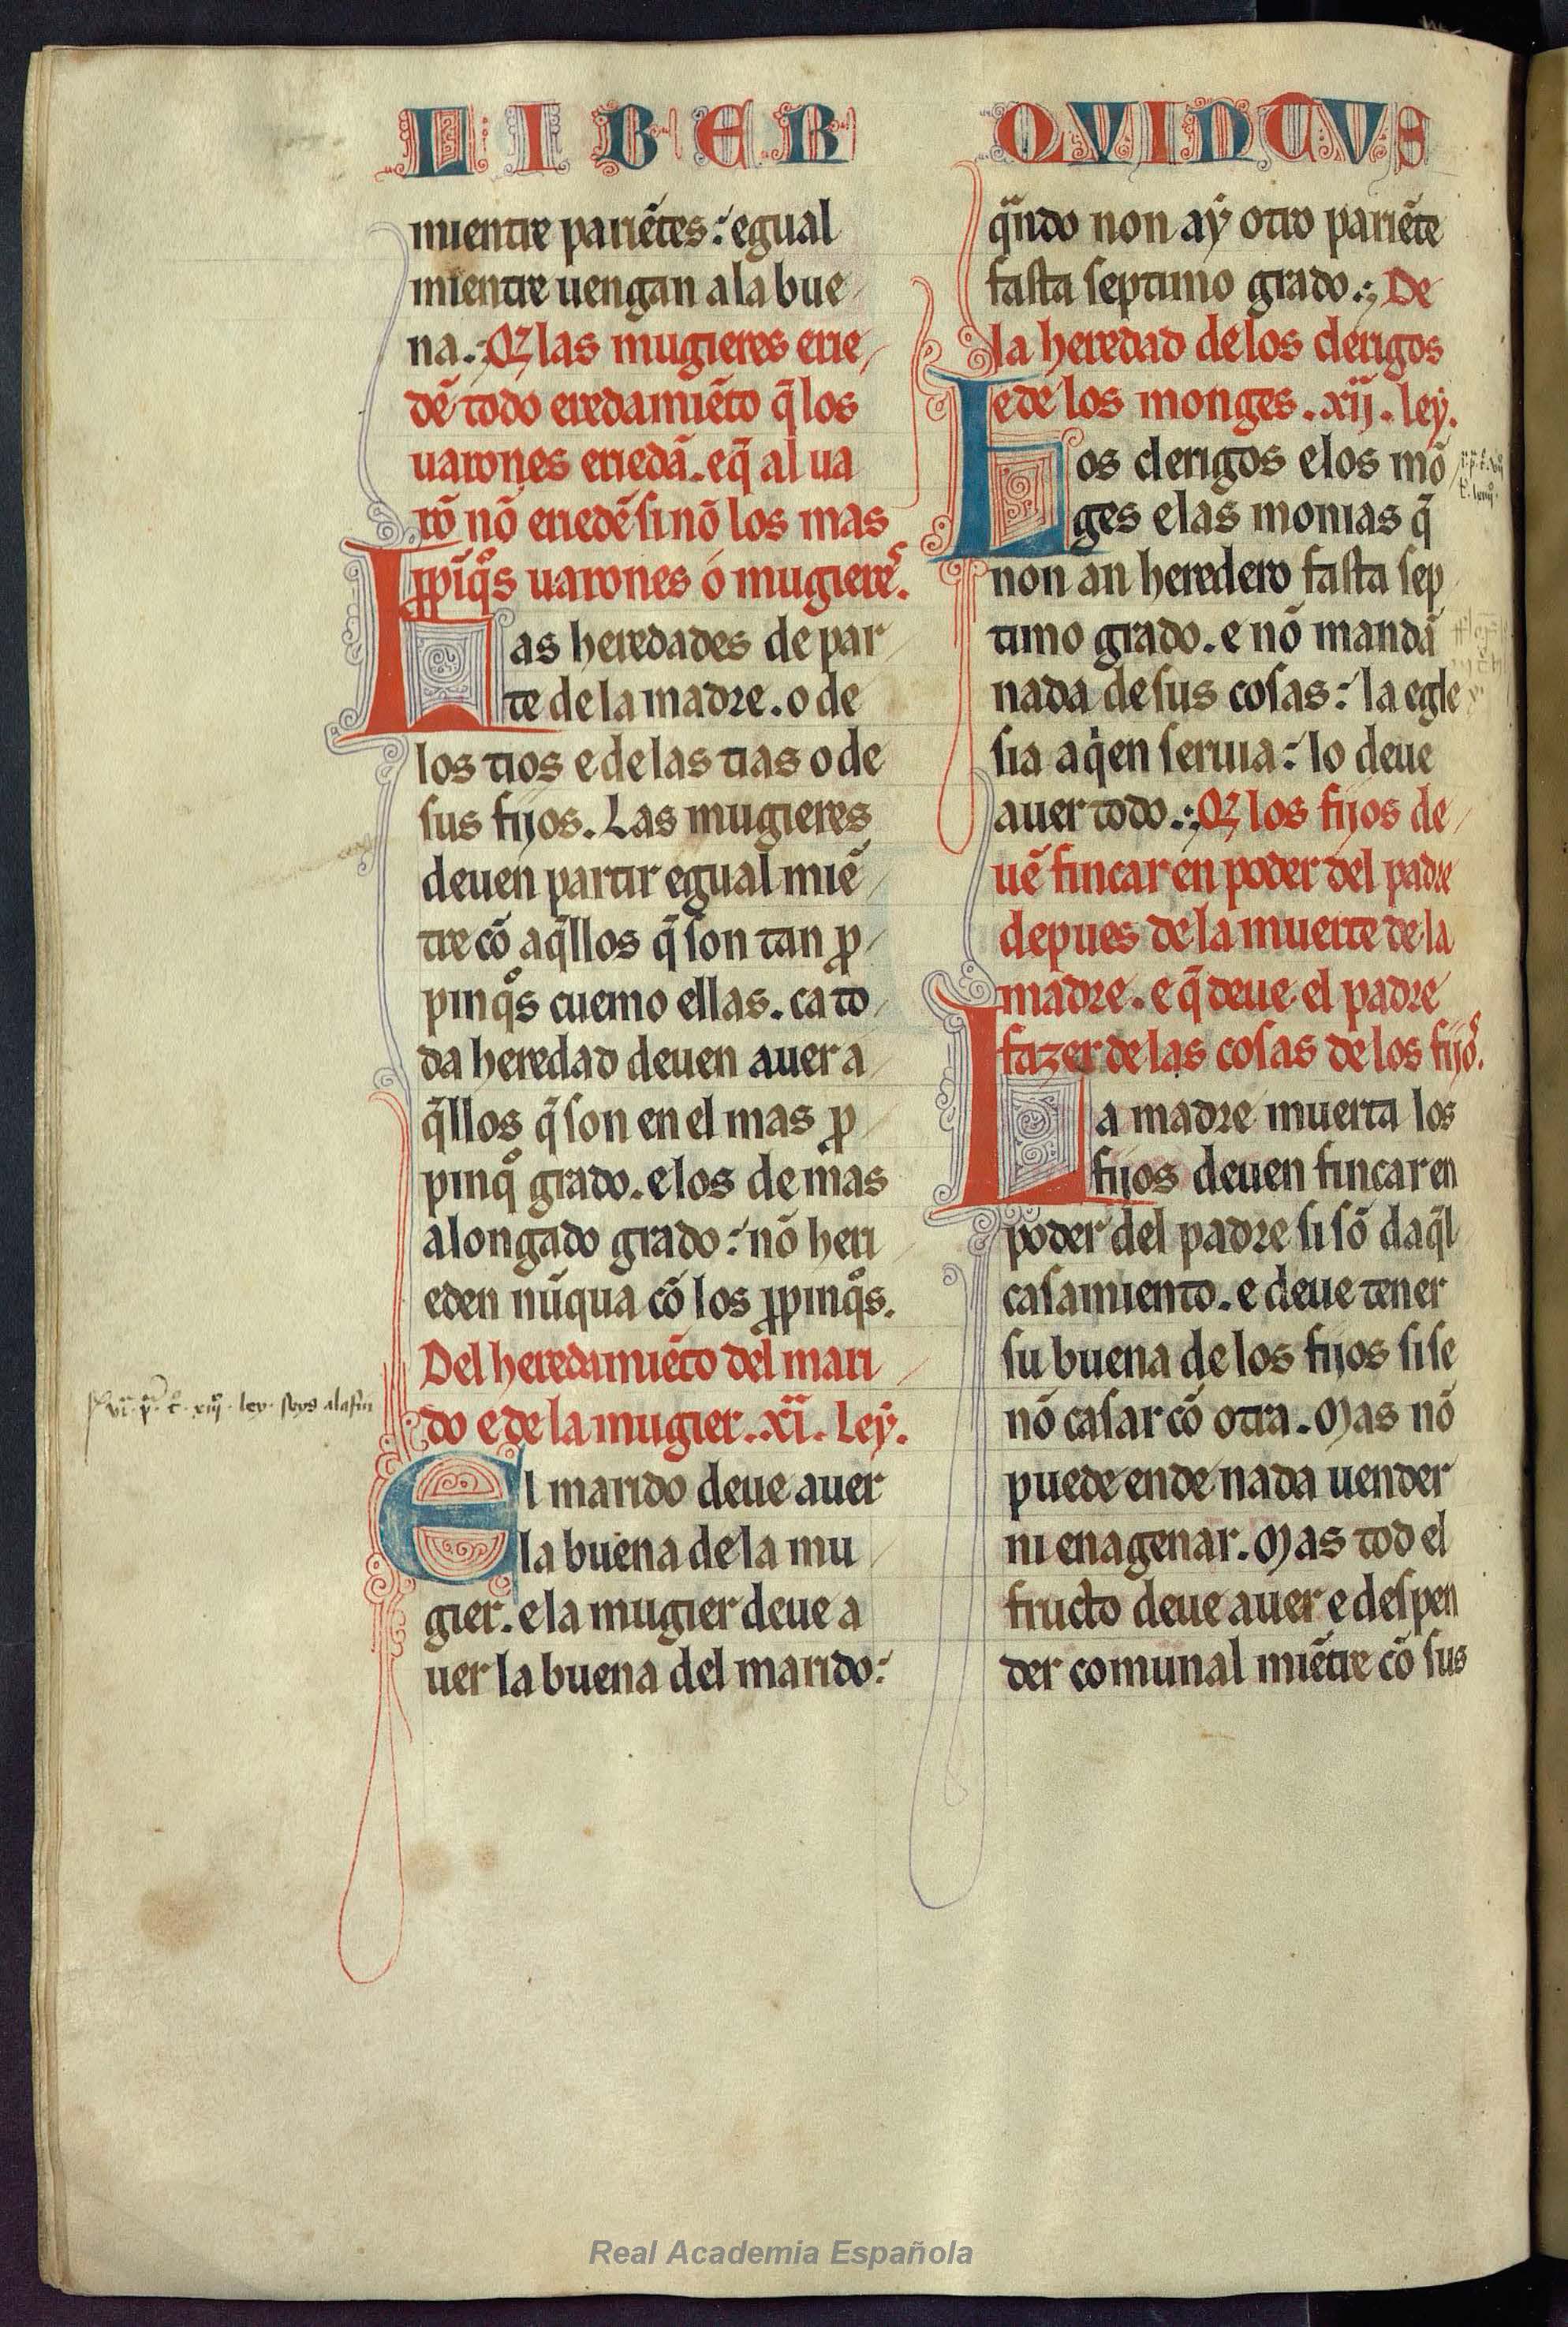 LIBER QVINTVS
mientre pariẽtes: egual
mientre uengan a la bue
na. Q̃ las mugieres erie
dẽ todo eredamiẽto q̃ los
uarones eriedã. e q̃ al ua
rõ nõ eriedẽ si nõ los mas
ꝓpĩq̊s uarones ó mugiereˢ.
Las heredades de par
te de la madre. o de
los tios e de las tias o de
sus fijos. Las mugieres
deuen partir egual miẽ
tre cõ aq̃llos q̃ son tan ꝓ
pinq̊s cuemo ellas. ca to
da heredad deuen auer a
q̃llos q̃ son en el mas ꝓ
pinq̊ grado. e los de mas
alongado grado: nõ heri
eden nũqua cõ los ꝓpinq̊s.
Del heredamiẽto del mari
do e de la mugier. .xi. Ley.
El marido deue auer
la buena de la mu
gier. e la mugier deue a
uer la buena del marido:
qũdo non aẏ otro pariẽte
fasta septimo grado. De
la heredad de los clerigos
e de los monges. .xij. ley.
Los clerigos e los mõ
ges e las monias q̃
non an heredero fasta sep
timo grado. e nõ mandã
nada de sus cosas: la egle
sia a q̇en seruia: lo deue
auer todo. Q̃ los fijos de
uẽ fincar en poder del padre
depues de la muerte de la
madre. e q̃ deue el padre
fazer de las cosas de los fijoˢ.
La madre muerta los
fijos deuen fincar en
poder del padre si sõ daq̃l
casamiento. e deue tener
su buena de los fijos si se
nõ casar cõ otra. Mas nõ
puede ende nada uender
ni enagenar. Mas tod el
fructo deue auer e despen
der comunal miẽtre cõ sus
Real Academia Española